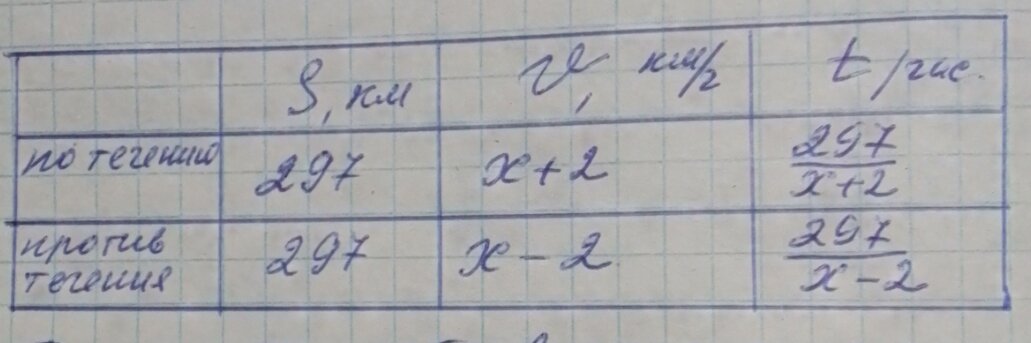 S, км v, км/г t /час.
по течению 297 x+2 297/x+2
против течения 297 x-2 297/x-2